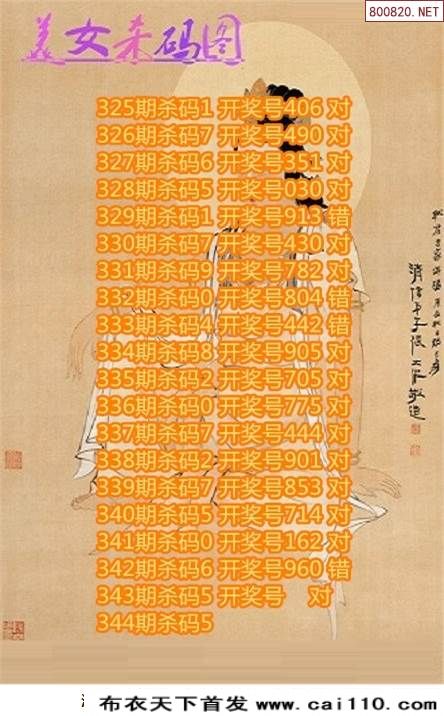 800820.NET
美女杀码图
325期杀码1 开奖号406 对
326期杀码7 开奖号490 对
327期杀码6 开奖号351 对
328期杀码5 开奖号030 对
329期杀码1 开奖号913 错
330期杀码7 开奖号430 对
331期杀码9 开奖号782 对
332期杀码0 开奖号804 错
333期杀码4 开奖号442 错
334期杀码8 开奖号905 对
335期杀码2 开奖号705 对
336期杀码0 开奖号775 对
337期杀码7 开奖号444 对
338期杀码2 开奖号901 对
339期杀码7 开奖号853 对
340期杀码5 开奖号714 对
341期杀码0 开奖号162 对
342期杀码6 开奖号960 错
343期杀码5 开奖号 对
344期杀码5
布衣天下首发 www.cai110.com